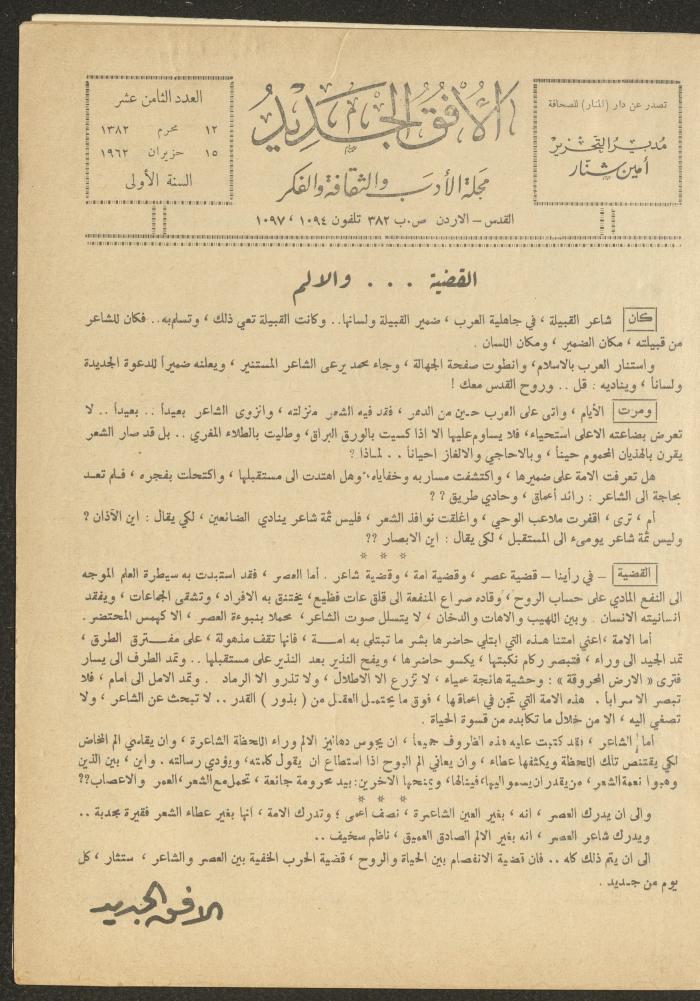 تصدر عن دار (المنار) للصحافة
مدير التحرير
أمين شنار
الأفق الجديد
مجلة الأدب والثقافة والفكر
العدد الثامن عشر
١٢ محرم ١٣٨٢
١٥ حزيران ١٩٦٢
السنة الأولى
القدس - الاردن ص.ب ٣٨٢ تلفون ١٠٩٤ ، ١٠٩٧
القضية . . . والالم
كان شاعر القبيلة ، في جاهلية العرب ، ضمير القبيلة ولسانها.. وكانت القبيلة تعي ذلك ، وتسلم به.. فكان للشاعر
من قبيلته ، مكان الضمير ، ومكان اللسان .
واستنار العرب بالاسلام، وانطوت صفحة الجهالة ، وجاء محمد يرعى الشاعر المستنير ، ويعلنه ضميراً للدعوة الجديدة
ولساناً ، ويناديه : قل .. وروح القدس معك !
ومرت الأيام ، واتى على العرب حين من الدهر ، فقد فيه الشعر منزلته ، وانزوى الشاعر بعيداً .. بعيداً .. لا
تعرض بضاعته الا على استحياء، فلا يساوم عليها الا اذا كسيت بالورق البراق، وطليت بالطلاء المغري .. بل قد صار الشعر
يقرن بالهذيان المحموم حيناً ، وبالاحاجي والالغاز احياناً . . لماذا ؟
هل تعرفت الامة على ضميرها ، واكتشفت مساربه وخفاياه، وهل اهتدت الى مستقبلها ، واكتحلت بفجره ، فلم تعد
بحاجة الى الشاعر : رائد أعماق ، وحادي طريق ؟ ?
أم ، ترى ، اقفرت ملاعب الوحي ، واغلقت نوافذ الشعر ، فليس ثمة شاعر ينادي الضائعين ، لكي يقال : اين الآذان ؟
وليس ثمة شاعر يومىء الى المستقبل ، لكي يقال : اين الابصار ??
* * *
القضية - في رأينا - قضية عصر ، وقضية امة ، وقضية شاعر . أما العصر ، فقد استبدت به سيطرة العلم الموجه
الى النفع المادي على حساب الروح ، وقاده صراع المنفعة الى قلق عات فظيع، يختنق به الافراد ، وتشقى الجماعات ، ويفقد
انسانيته الانسان . وبين اللهيب والاهات والدخان ، لا يتسلل صوت الشاعر ، محملا بنبوءة العصر ، الا كهمس المحتضر .
أما الامة ، اعني امتنا هذه التي ابتلي حاضرها بشر ما تبتلى به امة ، فانها تقف مذهولة ، على مفترق الطرق ،
تمد الجيد الى وراء ، فتبصر ركام نكبتها ، يكسو حاضرها ، ويفح النذير بعد النذير على مستقبلها .. وتمد الطرف الى يسار
فترى « الارض المحروقة » : وحشية هائجة عمياء ، لا تزرع إلا الاطلال ، ولا تذرو الا الرماد . وتمد الامل الى امام ، فلا
تبصر الا سراباً . هذه الامة التي تجن في اعماقها ، فوق ما يحتمل العقل من ( بذور ) القدر .. لا تبحث عن الشاعر ، ولا
تصغي اليه ، الا من خلال ما تكابده من قسوة الحياة .
أما الشاعر ، فقد كتبت عليه هذه الظروف جميعاً ، ان يجوس دهاليز الالم وراء اللحظة الشاعرة ، وان يقاسي الم المخاض
لكي يقتنص تلك اللحظة ويكثفها عطاء ، وان يعاني الم البوح اذا استطاع ان يقول كلمته، ويؤدي رسالته . واين ، بين الذين
وهبوا نعمة الشعر ، من يقدر ان يسمو اليها، فينالها، ويمنحها الاخرين: بيد محرومة جائعة ، تحمل مع الشعر، العمر والاعصاب??
* * *
والى ان يدرك العصر ، انه ، بغير العين الشاعرة ، نصف أعمى ؛ وتدرك الامة ، انها بغير عطاء الشعر فقيرة مجدبة ..
ويدرك شاعر العصر ، انه بغير الالم الصادق العميق ، ناظم سخيف ..
الى ان يتم ذلك كله .. فان قضية الانفصام بين الحياة والروح ، قضية الحرب الخفية بين العصر والشاعر ، ستثار ، كل
يوم من جديد .
الافق الجديد